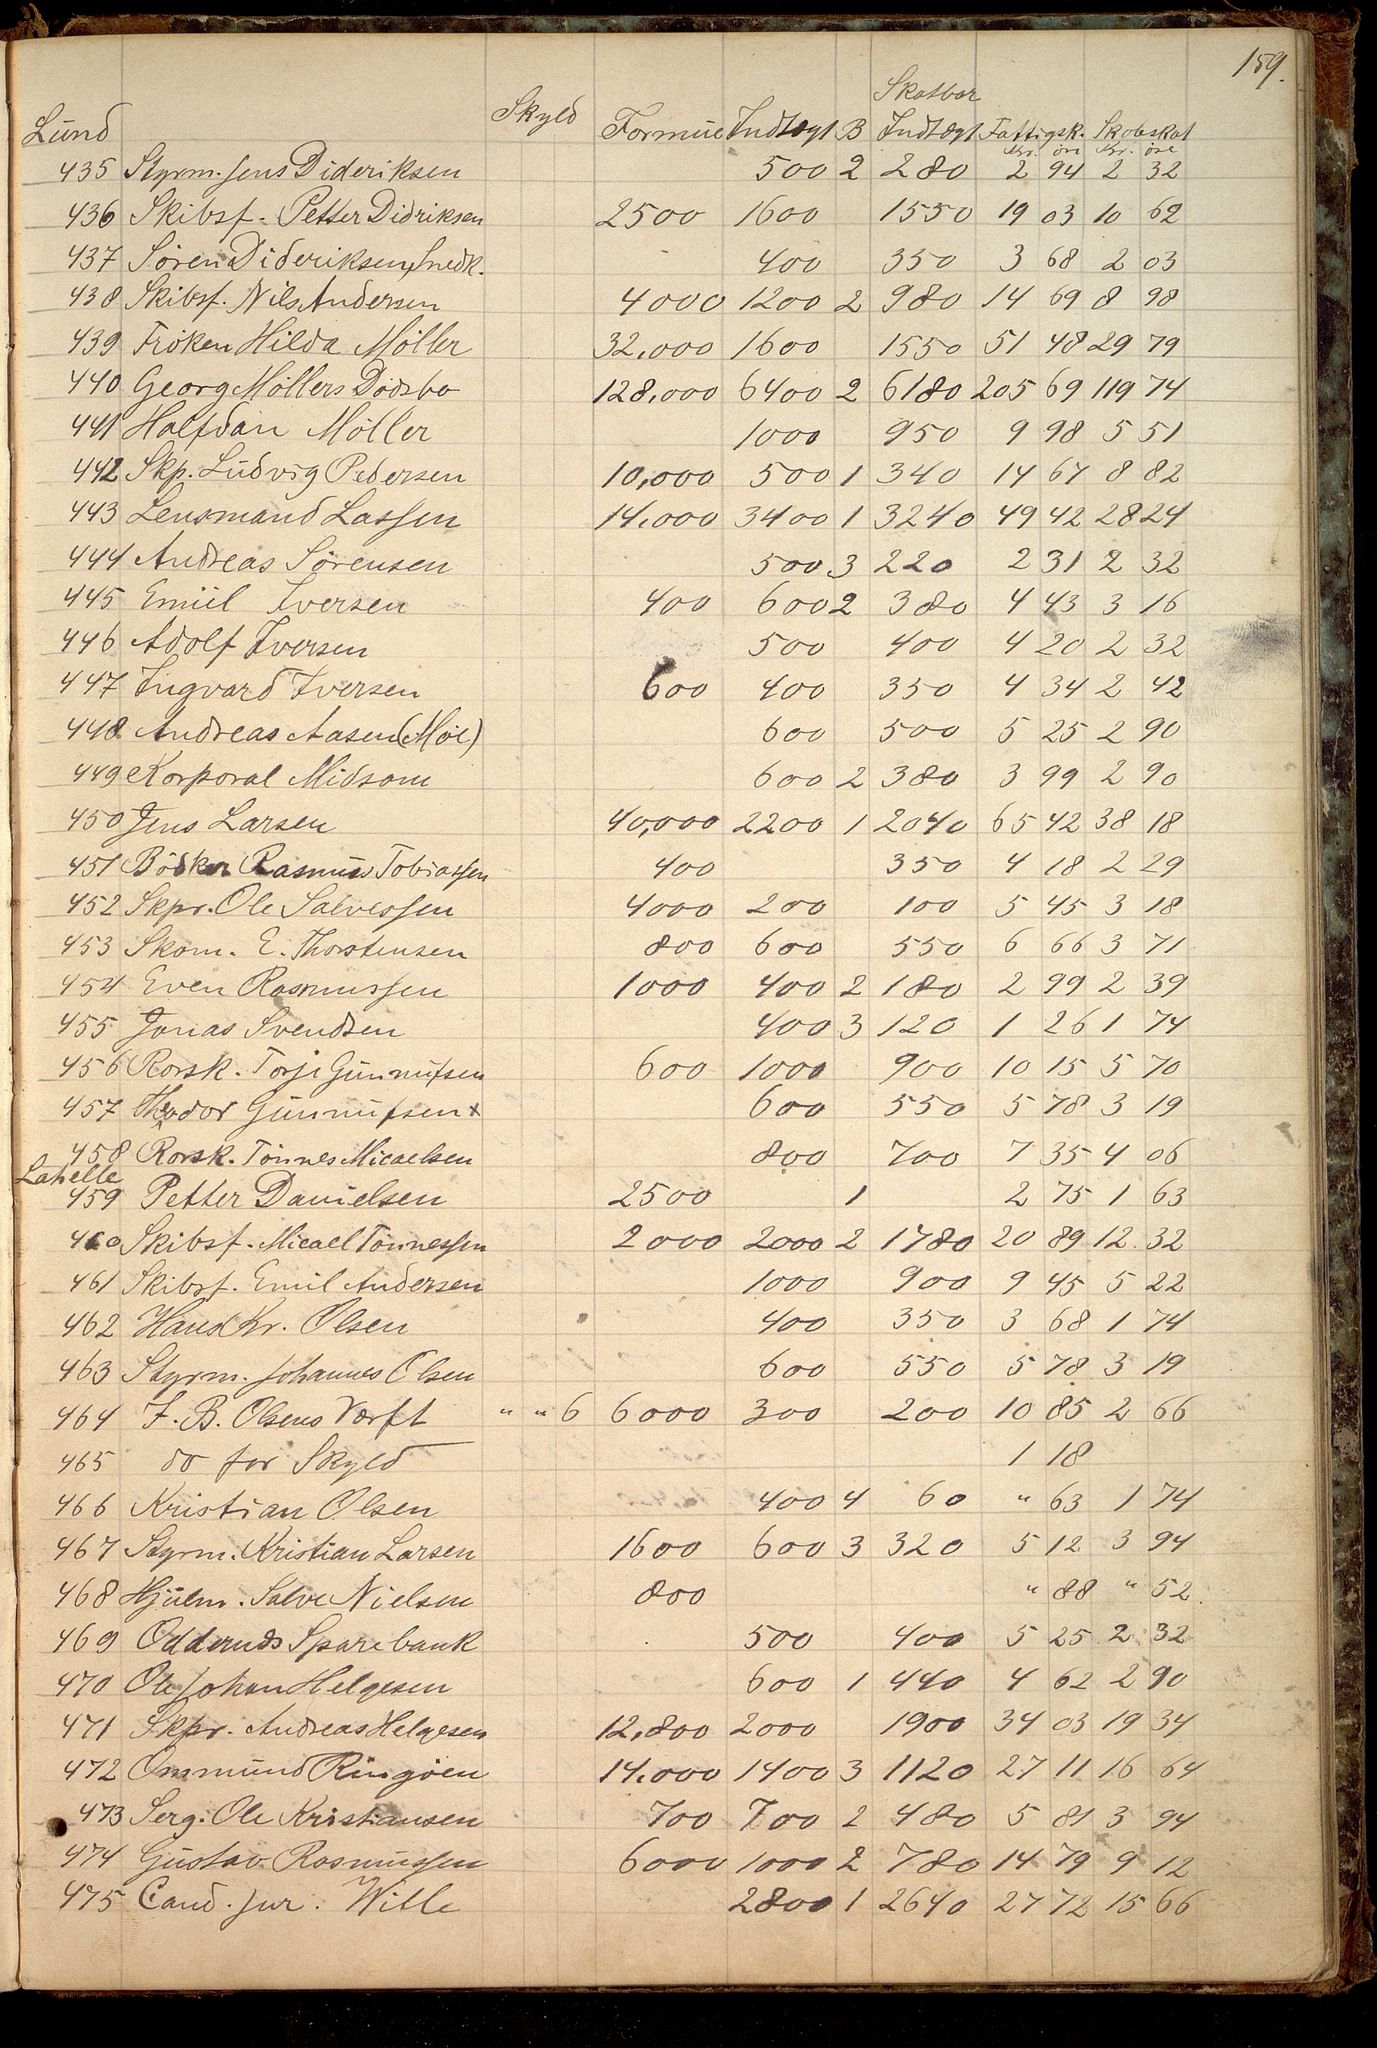 159.
Skatbar
Lund Skyld Formue Indtægt B Indtægt Fattigsk. Skolskat
Kr. öre Kr. öre
435 Styrm. Jens Dideriksen 500 2 280 2 94 2 32
436 Skibsf. Petter Didriksen 2500 1600 1550 19 03 10 62
437 Sören Dideriksen, Snedk. 400 350 3 68 2 03
438 Skibsf. Nils Andersen 4000 1200 2 980 14 69 8 98
439 Fröken Hilda Möller 32.000 1600 1550 51 48 29 79
440 Georg Möllers Dödsbo 128.000 6400 2 6180 205 69 119 74
441 Halfdan Möller 1000 950 9 98 5 51
442 Skp. Ludvig Pedersen 10,000 500 1 340 14 67 8 82
443 Lensmand Lassen 14.000 3400 1 3240 49 42 28 24
444 Andreas Sörensen 500 3 220 2 31 2 32
445 Emiil Iversen 400 600 2 380 4 43 3 16
446 Adolf Iversen 500 400 4 20 2 32
447 Ingvard Iversen 600 400 350 4 34 2 42
448 Andreas Aasen (Möe) 600 500 5 25 2 90
449 Korporal Midsom 600 2 380 3 99 2 90
450 Jens Larsen 40,000 2200 1 2040 65 42 38 18
451 Bödker Rasmus Tobiassen 400 350 4 18 2 29
452 Skpr. Ole Salvessen 4000 200 100 5 45 3 18
453 Skom. E. Thorstensen 800 600 550 6 66 3 71
454 Even Rasmussen 1000 400 2 180 2 99 2 39
455 Jonas Svendsen 400 3 120 1 26 1 74
456 Rorsk. Torji Gunnufsen 600 1000 900 10 15 5 70
457 Theodor Gunnufsen x 600 550 5 78 3 19
458 Rorsk. Tönnes Micaelsen 800 700 7 35 4 06
Lahelle
459 Petter Danielsen 2500 1 2 75 1 63
460 Skibsf. Micael Tönnessen 2000 2000 2 1780 20 89 12 32
461 Skibsf. Emil Andersen 1000 900 9 45 5 22
462 Hans Kr. Olsen 400 350 3 68 1 74
463 Styrm. Johannes Olsen 600 550 5 78 3 19
464 F. B. Olsens Værft " " 6 6000 300 200 10 85 2 66
465 do for Skyld 1 18
466 Kristian Olsen 400 4 60 " 63 1 74
467 Styrm. Kristian Larsen 1600 600 3 320 5 12 3 94
468 Hjulm. Salve Nielsen 800 " 88 " 52
469 Oddernes Sparebank 500 400 5 25 2 32
470 Ole Johan Helgesen 600 1 440 4 62 2 90
471 Skpr. Andreas Helgesen 12,800 2000 1900 34 03 19 34
472 Ommund Ringöen 14.000 1400 3 1120 27 11 16 64
473 Serg. Ole Kristiansen 700 700 2 480 5 81 3 94
474 Gustav Rasmussen 6000 1000 2 780 14 79 9 12
475 Cand. jur. Wille 2800 1 2640 27 72 15 66